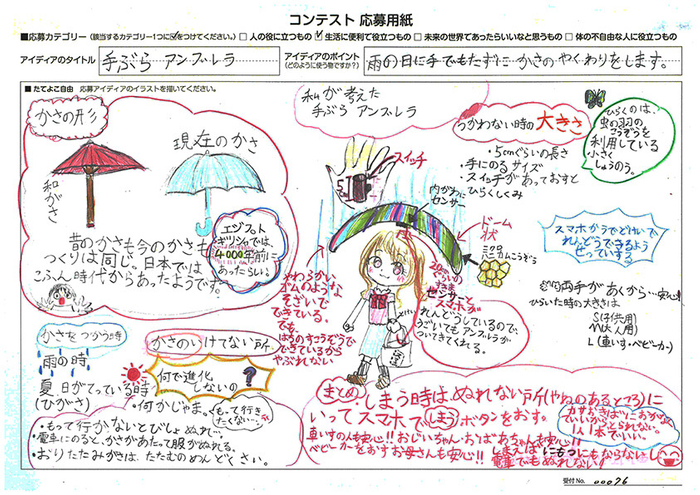 コンテスト 応募用紙
■応募カテゴリー(該当するカテゴリー1つに✓をつけてください。) □ 人の役に立つもの ☑ 生活に便利で役立つもの □ 未来の世界であったらいいなと思うもの □ 体の不自由な人に役立つもの
アイディアのタイトル
手ぶら アンブレラ
アイディアのポイント
(どのように使う物ですか?)
雨の日に手でもたずに かさの やくわりをします。
■たてよこ自由 応募アイディアのイラストを描いてください。
かさの形
現在のかさ
和がさ
昔のかさも今のかさも
つくりは同じ。日本では
こふん時代からあったようです。
エジプト
ギリシャでは、
4000年前に
あったらしい。
私が考えた
手ぶら アンブレラ
スイッチ
内がわに
センサー
ドーム
状
ミクロ
ハニカムこうぞう
つかわない時の大きさ
・5cmぐらいの長さ
・手にのるサイズ
・スイッチがあっておすと
ひらくしくみ
ひらくのは、
虫の羽の
こうぞうを
利用している
小さく
しゅうのう。
スマホがうでどけいで
れんどうできるよう
ぜっていする
両手があくから…安心!
ひらいた時の大きさは
S(子供用)
M(大人用)
L(車いす・ベビーカー)
やわらかい
ゴムのような
そざいで
できている。
でも、
はちのすこうぞうで
できているから
やぶれない
センサーと
スマホが
れんどうしているので
うごいても アンブレラが
ついてきてくれる。
かさをつかう時
雨の時
夏 日がてっている時
(ひがさ)
かさのいけてない所
何で進化
しないの?
・何かじゃま。
もって行き
たくない…
・もって行かないとびしょぬれ…
・電車にのると、かさがあたって服がぬれる。
・おりたたみがさは、たたむのめんどくさい。
まとめ しまう時は、ぬれない所(やねのあるところ)に
いってスマホでしまうボタンをおす。
車いすの人も安心!! おじいちゃん・おばあちゃんも安心!!
ベビーカーをおすお母さんも安心!! しまえばにもつにもならないし
電車でもぬれない!
カサおきばにおかなくて
いいからとられない。
1人1本でいい。
受付No. 00076